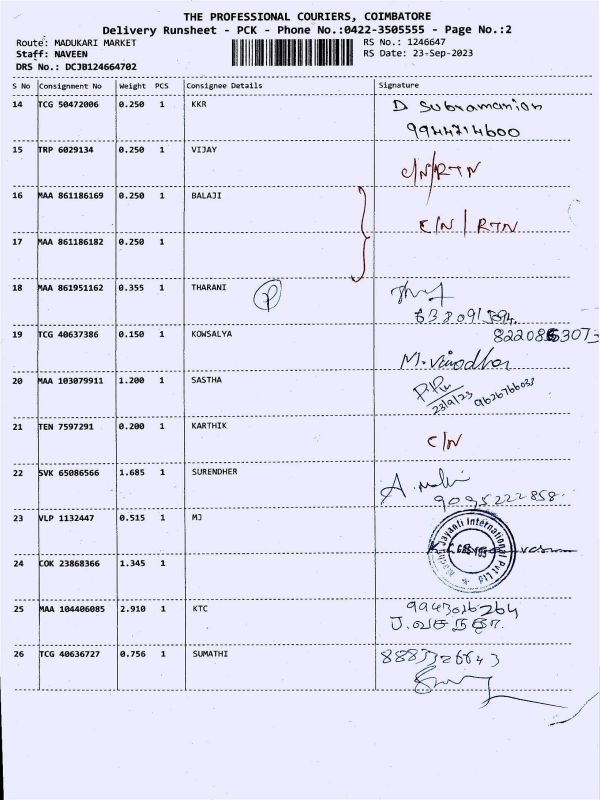 THE PROFESSIONAL COURIERS, COIMBATORE
Delivery Runsheet - PCK - Phone No.:0422-3505555 - Page No.:2
Route: MADUKARI MARKET RS No.: 1246647
Staff: NAVEEN RS Date: 23-Sep-2023
DRS No.: DCJB124664702
S No Consignment No Weight PCS Consignee Details Signature
14 TCG 50472006 0.250 1 KKR D Subramanian
9944714600
15 TRP 6029134 0.250 1 VIJAY C/N/RTN
16 MAA 861186169 0.250 1 BALAJI
C/N / RTN
17 MAA 861186182 0.250 1
18 MAA 861951162 0.355 1 THARANI P
19 TCG 40637386 0.150 1 KOWSALYA
20 MAA 103079911 1.200 1 SASTHA
23/9/23 9626766032
21 TEN 7597291 0.200 1 KARTHIK C/N
22 SVK 65086566 1.685 1 SURENDHER
9095222858
23 VLP 1132447 0.515 1 MJ
Jayanti International Pvt Ltd
24 COK 23868366 1.345 1
25 MAA 104406085 2.910 1 KTC 9943016264
26 TCG 40636727 0.756 1 SUMATHI